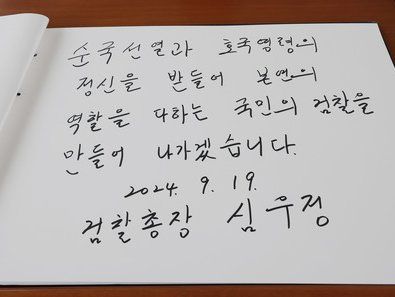 순국선열과 호국영령의
정신을 받들어 본연의
역할을 다하는 국민의 검찰을
만들어 나가겠습니다.
2024. 9. 19.
검찰총장 심우정